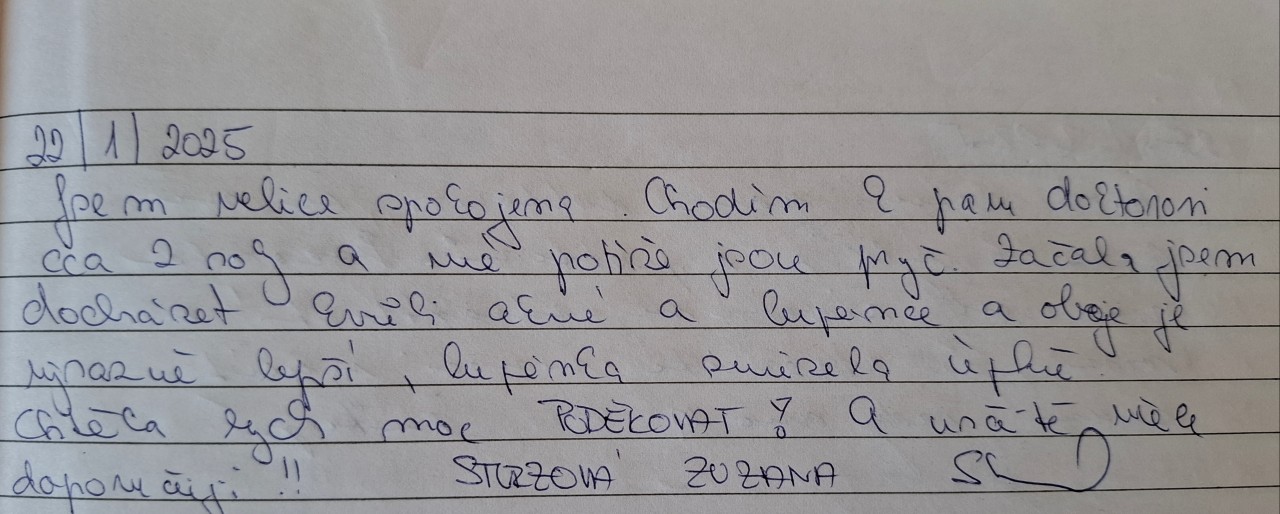 22/1/2025
Jsem velice spokojena. Chodím k panu doktorovi
cca 2 roky a mé potíže jsou pryč. Začala jsem
docházet kvůli akné a lupénce a oboje je
výrazně lepší, lupénka zmizela úplně.
Chtěla bych moc PODĚKOVAT! A určitě vřele
doporučuji!! STURZOVÁ ZUZANA